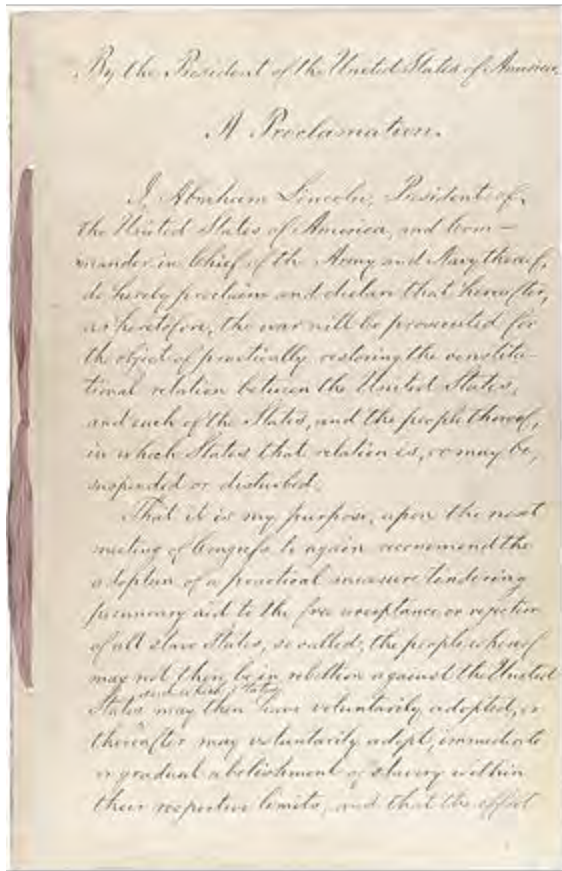 By the President of the United States of America.
A Proclamation.
I, Abraham Lincoln, President of
the United States of America, and Com-
mander in Chief of the Army and Navy thereof,
do hereby proclaim and declare that hereafter,
as heretofore, the war will be prosecuted for
the object of practically restoring the constitu-
tional relation between the United States,
and each of the States, and the people thereof,
in which States that relation is, or may be,
suspended or disturbed.
That it is my purpose, upon the next
meeting of Congress to again recommend the
adoption of a practical measure tendering
pecuniary aid to the free acceptance or rejection
of all slave States, so called, the people whereof
may not then be in rebellion against the United
and which States
States may then have voluntarily adopted, or
thereafter may voluntarily adopt, immediate
or gradual abolishment of slavery within
their respective limits, and that the effort